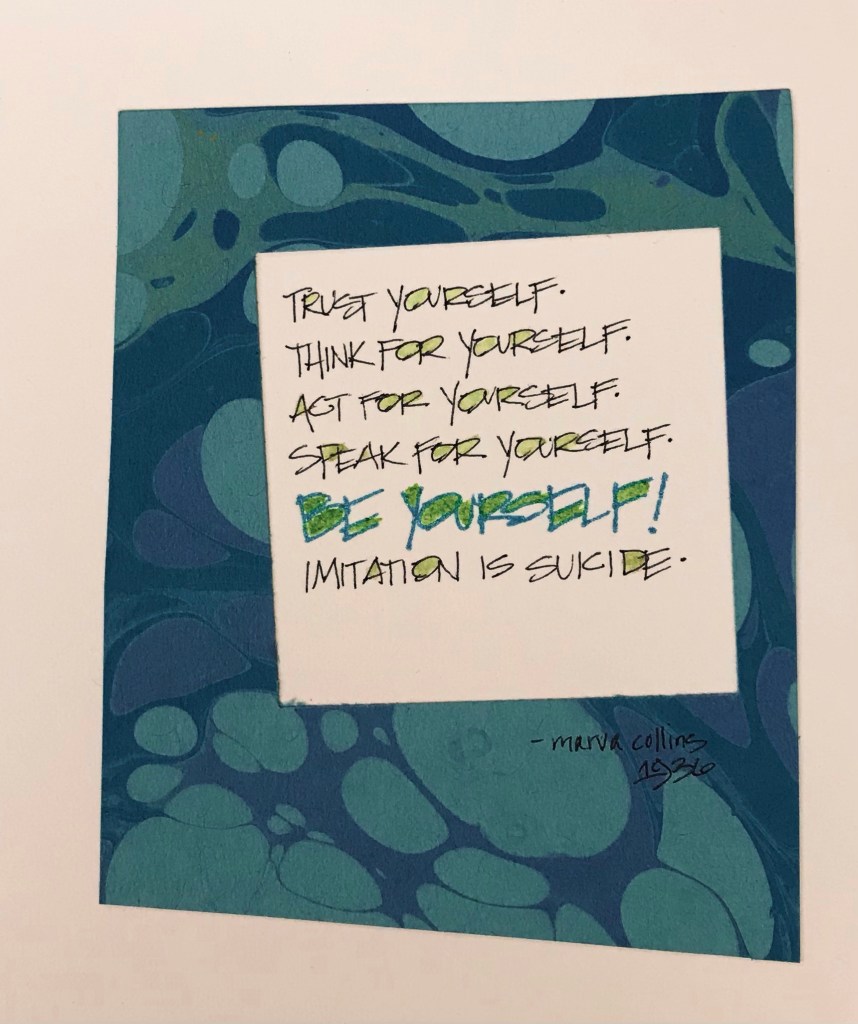 TRUST YOURSELF.
THINK FOR YOURSELF.
ACT FOR YOURSELF.
SPEAK FOR YOURSELF.
BE YOURSELF!
IMITATION IS SUICIDE.
- marva collins
1936